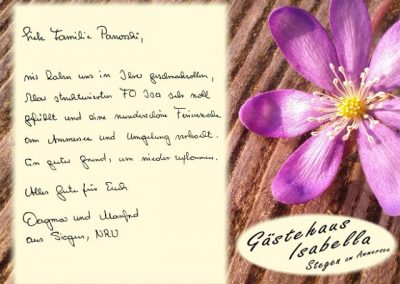 Liebe Familie Panoski,
wir haben uns in Ihrer geschmackvollen,
klar strukturierten FO Isa sehr wohl
gefühlt und eine wunderschöne Ferienwoche
am Ammersee und Umgebung verbracht.
Ein guter Grund, um wieder zukommen.
Alles Gute für Euch
Dagmar und Manfred
aus Siegen, NRW
Gästehaus
Isabella
Stegen am Ammersee